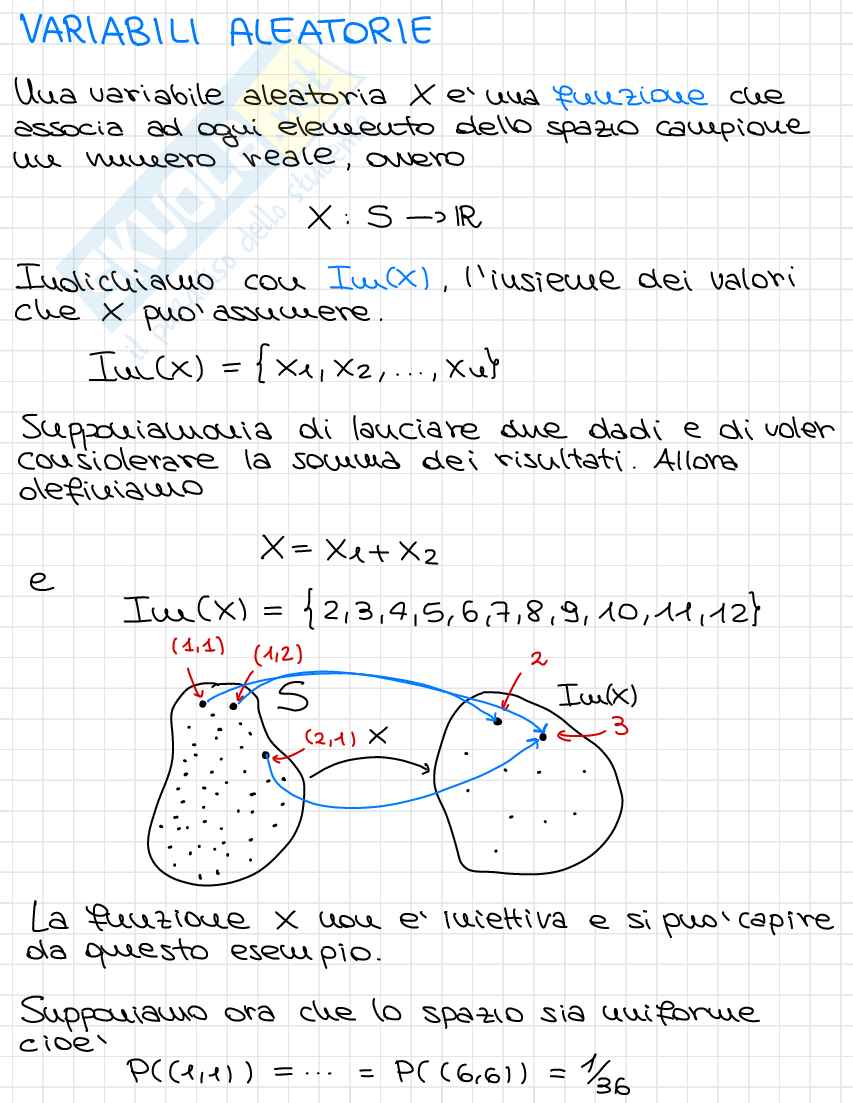 VARIABILI ALEATORIE
Una variabile aleatoria X e' una funzione che
associa ad ogni elemento dello spazio campione
un numero reale, ovvero
X : S → ℝ
Indichiamo con Im(X), l'insieme dei valori
che X puo' assumere.
Im(X) = {X1, X2, ..., Xn}
di lanciare due dadi e di voler
considerare la somma dei risultati. Allora
definiamo
X = X1 + X2
e
Im(X) = {2,3,4,5,6,7,8,9,10,11,12}
(1,1) (1,2) 2
S Im(X)
(2,1) X 3
La funzione X non e' iniettiva e si puo' capire
da questo esempio.
Supponiamo ora che lo spazio sia uniforme
cioe'
P((1,1)) = ... = P((6,6)) = 1/36
SKUOLA.net
il paradiso dello studente